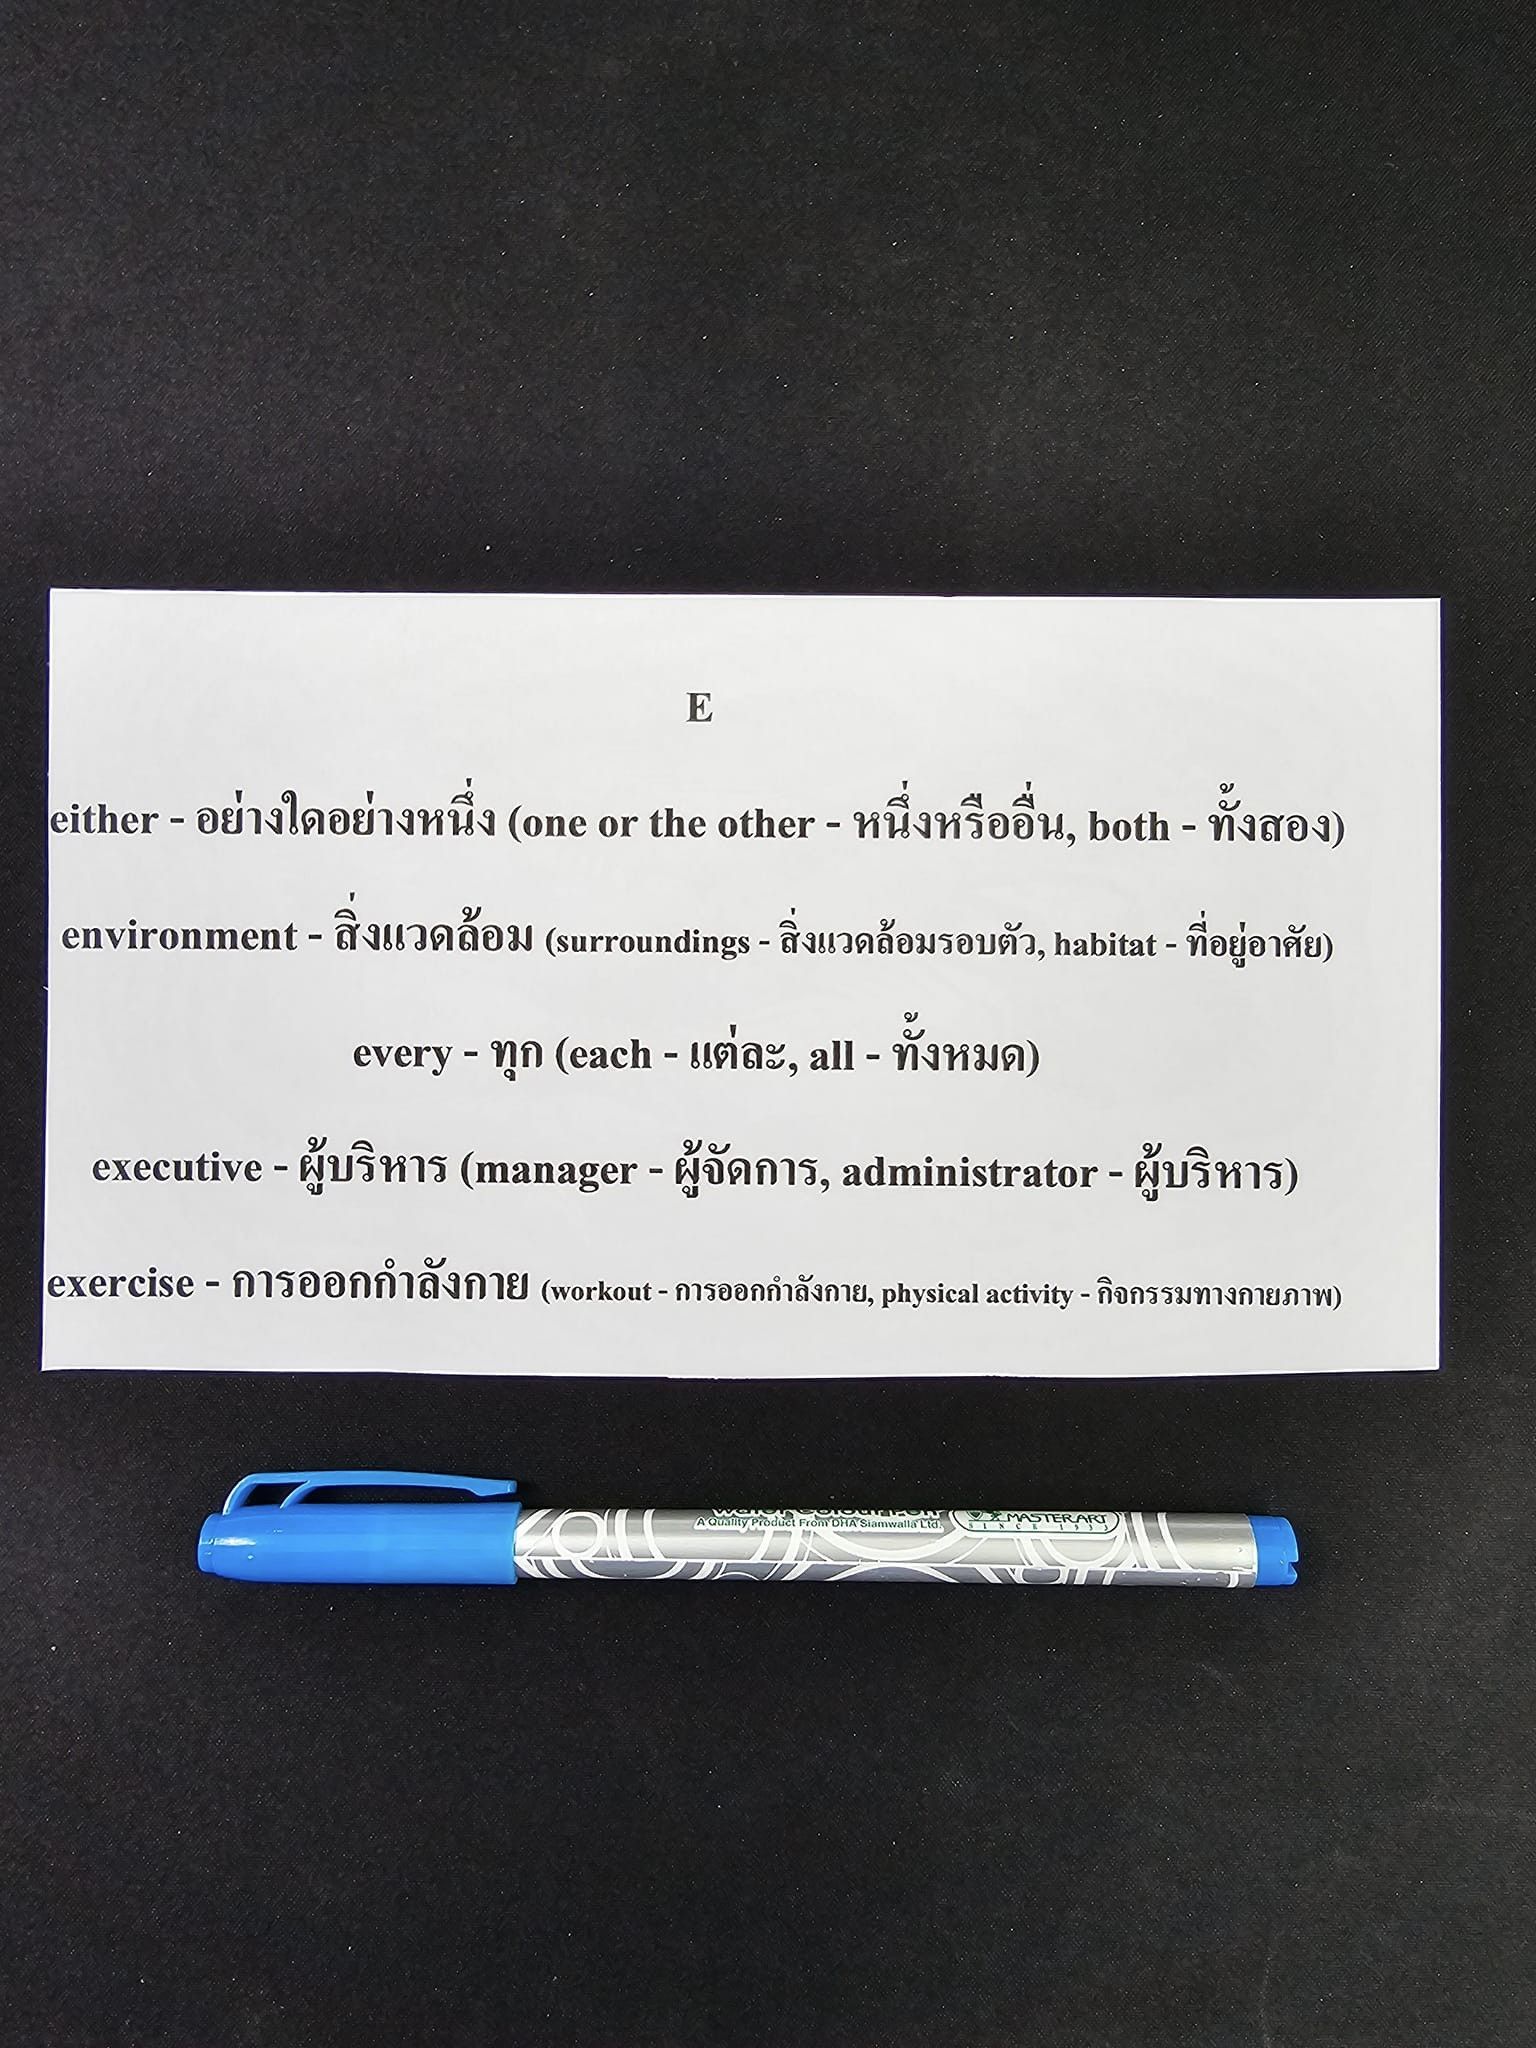 E
either - อย่างใดอย่างหนึ่ง (one or the other - หนึ่งหรืออื่น, both - ทั้งสอง)
environment - สิ่งแวดล้อม (surroundings - สิ่งแวดล้อมรอบตัว, habitat - ที่อยู่อาศัย)
every - ทุก (each - แต่ละ, all - ทั้งหมด)
executive - ผู้บริหาร (manager - ผู้จัดการ, administrator - ผู้บริหาร)
exercise - การออกกำลังกาย (workout - การออกกำลังกาย, physical activity - กิจกรรมทางกายภาพ)
A Quality Product From DHA Siamwalla Ltd.
MASTERART
SINCE 1933